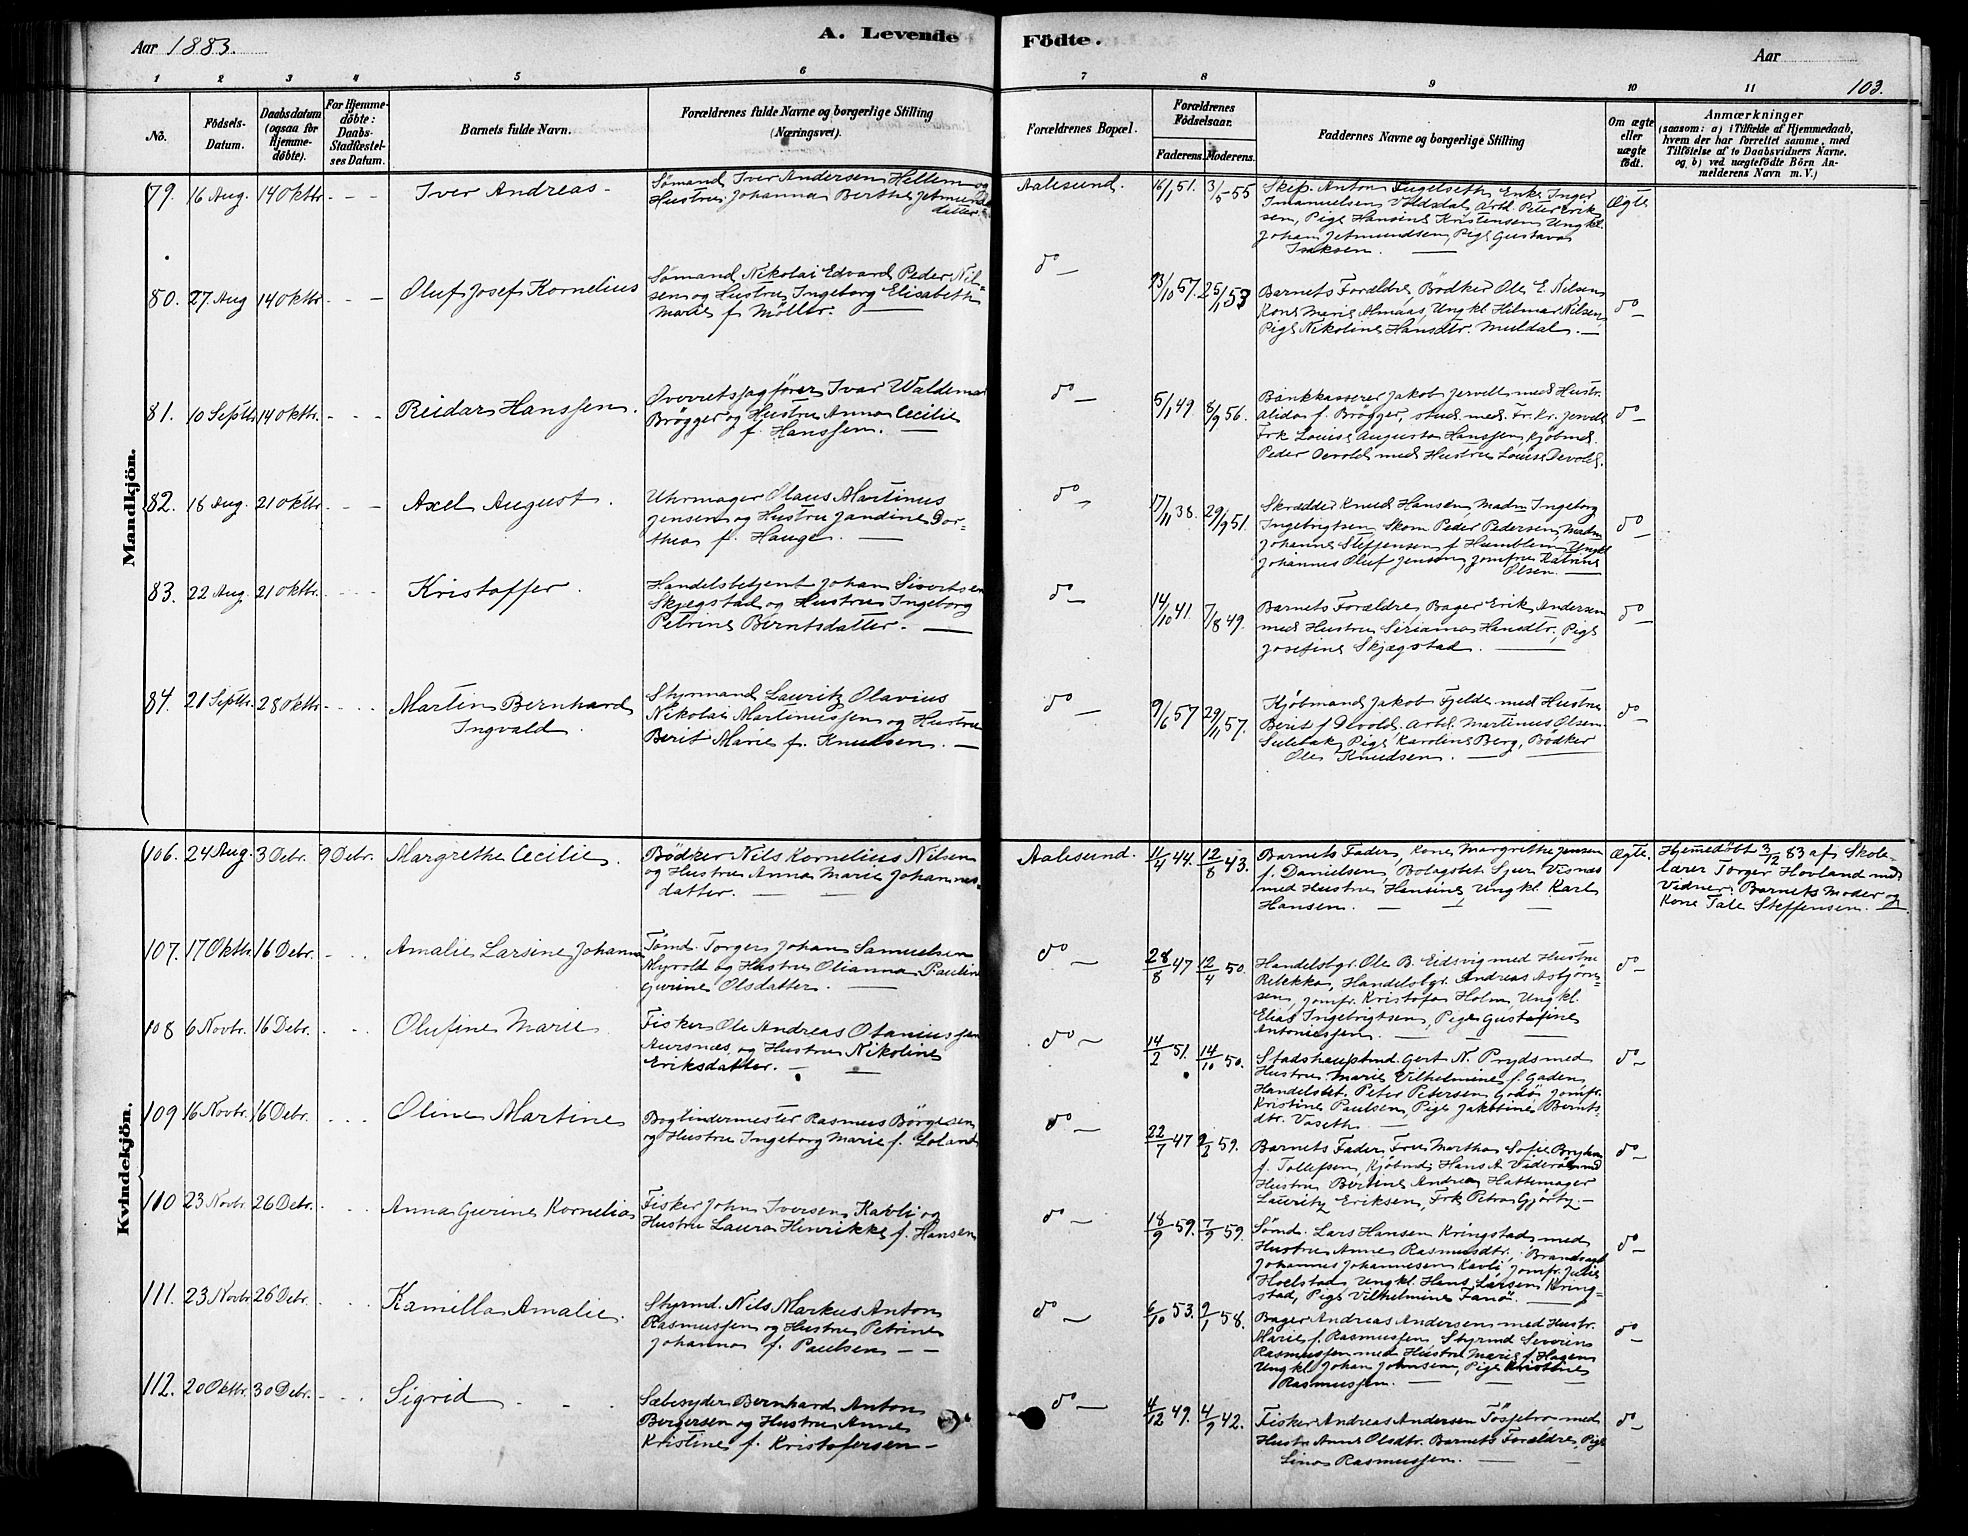 Aar 1883.
A. Levende Födte.
Aar
103.
1 2 3 4 5 6 7 8 9 10 11
No.
Födsels-Datum.
Daabsdatum (ogsaa for Hjemme-döbte).
For Hjemme-döbte: Daabs-Stadfæstel-ses Datum.
Barnets fulde Navn.
Forældrenes fulde Navne og borgerlige Stilling
(Næringsvei).
Forældrenes Bopæl.
Forældrenes Födselsaar.
Faderens. Moderens.
Faddernes Navne og borgerlige Stilling
Om ægte eller uægte födt.
Anmærkninger
(saasom: a) i Tilfælde af Hjemmedaab,
hvem der har forrettet samme, med
Tilföielse af to Daabsvidners Navne.
og b) ved uægtefödte Börn An-
melderens Navn m. V.)
Mandkjön.
79. 16 Aug. 14 Oktbr. - - - Iver Andreas -
Sømand Iver Andersen Hellem og
Hustru Johanna Berthe Jetmunds
datter.
Aalesund. 16/1 51. 3/5 55
Skip. Anton Engelseth, Enke Inger
Imanuelsen Voldsdal, Arbd. Peter Erik
sen, Pige Hansine Kristensen, Ungkl.
Johan Jetmundsen, Pige Gustava
Isaksen. —
Ægte
80. 27 Aug 14 Oktbr - - - Oluf Josef Kornelius
Sømand Nikolai Edvard Peder Nil-
sen og Hustru Ingeborg Elisabeth
Marie f. Möller. —
do — 23/10 57. 25/1 53
Barnets Forældre, Bödker Ole E. Nilsen
Kone Marie Almaas, Ungkl. Hilmar Nilsen,
Pige Nikoline Hansdtr. Muldal. —
do —
81. 10 Septbr. 14 Oktbr. - - - Reidar Hanssen.
Overretssagförer Ivar Waldemar
Brögger og Hustru Anna Cecilie
f. Hanssen. —
do — 5/1 49. 8/9 56.
Bankkasserer Jakob Jervell med Hustr.
Alida f. Brögger, stud. med. Fr. Kr. Jervell
Frk Louise Augusta Hanssen, Kjöbmd.
Peder Devold med Hustru Louise Devold.
do —
82. 18 Aug. 21 Oktbr. - - - Axel August.
Uhrmager Olaus Martinus
Jensen og Hustru Jandine Dor-
thea f. Hauge. —
do — 17/11 38. 29/9 51.
Skrædder Knud Hansen, Madm Ingeborg
Ingebrigtsen, Skom. Peder Pedersen, Madm
Johanne Steffensen f. Humblem, Ungkl
Johannes Oluf Jensen, Jomfru Katrine
Olsen. —
do —
83. 22 Aug. 21 Oktbr. - - - Kristoffer.
Handelsbetjent Johan Sivertsen
Skjegstad og Hustru Ingeborg
Petrine Berntsdatter. —
do — 14/10 41. 7/8 49.
Barnets Forældre, Bager Erik Andersen
med Hustru Siriama Hansdtr., Pige
Josefine Skjægstad. —
do —
84. 21 Septbr. 28 Oktbr - - - Martin Bernhard
Ingvald.
Styrmand Lauritz Olavius
Nikolai Martinussen og Hustru
Berit Marie f. Knudsen. —
do — 9/6 57 29/11 57.
Kjöbmand Jakob Fjelde med Hustru
Berit f. Devold, Arbd. Martinus Olsen
Sulebak, Pige Karoline Berg, Bödker
Ole Knudsen. —
do —
Kvindekjön.
106. 24 Aug. 3 Debr. 9 Debr. Margrethe Cecilie.
Bödker Nils Kornelius Nilsen
og Hustru Anna Marie Johannes-
datter. —
Aalesund. 11/4 44. 12/8 43.
Barnets Fader, Kone Margrethe Jensen
f. Danielsen, Bolagstet Sjur Visnæs
med Hustru Hansine, Ungkl. Karl
Hansen. —
Ægte.
Hjemmedöbt 3/12 83 af Skole-
lærer Torger Hovland med
Vidner: Barnets Moder og
Kone Tale Steffensen. —
107. 17 Oktbr. 16 Debr. - - - Amalie Larsine Johanna
Tömd. Torger Johan Samuelsen
Myrold og Hustru Olianna Pauline
Gurine Olsdatter. —
do — 28/8 47 12/4 50.
Handelsbgr. Ole B. Eidsvig med Hustru
Rebekka, Handelsbgr. Andreas Asbjörn-
sen, Jomfr. Kristofa Holm, Ungkl.
Elias Ingebrigtsen, Pige Gustafine
Antoniessen. —
do —
108 6 Novbr. 16 Debr. - - - Olufine Marie
Fisker Ole Andreas Otaniussen
Aursnæs, og Hustru Nikoline
Eriksdatter. —
do — 14/2 51. 14/10 50.
Stadshauptmd. Gert N. Pryds med
Hustru Marie Vilhelmine f. Gaden,
Handelsbet. Peter Petersen Godö, Jomfr.
Kristine Paulsen, Pige Jakobine Bernts
dtr. Vaseth —
do —
109 16 Novbr. 16 Debr. - - - Oline Martine
Bogbindermester Rasmus Börgesen
og Hustru Ingeborg Marie f. Loland
do — 22/7 47 2/2 59.
Barnets Fader, Frue Martha Sofie Bryhn
f. Tollefsen, Kjöbmd. Hans A. Viderö med
Hustru Bertine Andrea, Hattemager
Lauritz Eriksen, Frk Petra Gjörtz. —
do —
110 23 Novbr. 26 Debr. - - Anna Gurine Kornelia
Fisker John Iversen Kavli og
Hustru Laura Henrikke f. Hansen
do — 18/9 59. 7/9 59.
Sömd. Lars Hansen Kringstad med
Hustru Anne Rasmusdtr.,
Johannes Johannesen Kavli, Jomfr. Julie
Hoelstad, Ungkl. Hans Larsen Kring-
stad, Pige Vilhelmine Fanö. —
do —
111. 23 Novbr 26 Debr. - - Kamilla Amalie.
Styrmd. Nils Markus Anton
Rasmussen og Hustru Petrine
Johanna f. Paulsen — —
do — 6/10 53. 9/1 58.
Bager Andreas Andersen med Hustr.
Marie f. Rasmussen, Styrmd Severin
Rasmussen med Hustru Marie f. Hagen
Ungkl Johan Johnsen, Pige Kristine
Rasmussen. —
do —
112. 20 Oktbr. 30 Debr. - - - Sigrid - -
Sæbesyder Bernhard Anton
Bergersen og Hustru Anne
Kristine f. Kristofersen —
do — 4/12 49. 4/9 42.
Fisker Andreas Andersen Tössebro med
Hustr. Anne Olsdtr. Barnets Forældre, Pige
Lina Rasmussen. —
do —